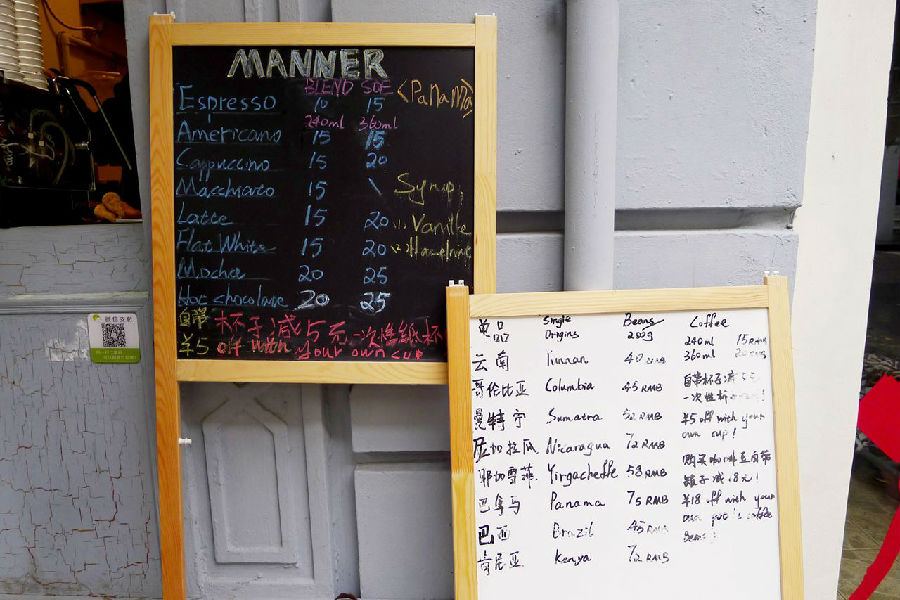 MANNER
BLEND SOE <Panama>
Espresso 10 15
240ml 360ml
Americano 15 15
Cappuccino 15 20
Macchiato 15 \
Syrup:
Latte 15 20
Vanilla
Flat White 15 20
Hazelnut
Mocha 20 25
Hot chocolate 20 25
自带杯子减5元 一次性纸杯
¥5 off with your own cup
微信支付
单品 Single Origins Beans 250g Coffee
240ml 15RMB
360ml 20RMB
云南 Yunnan 40RMB
哥伦比亚 Columbia 45RMB
曼特宁 Sumatra 52RMB
尼加拉瓜 Nicaragua 72RMB
耶加雪菲 Yirgacheffe 58RMB
巴拿马 Panama 75RMB
巴西 Brazil 45RMB
肯尼亚 Kenya 72RMB
自带杯子减5元
一次性杯
¥5 off with your
own cup!
购买咖啡豆自带
罐子减18元!
¥18 off with your
own pot's coffee
beans!